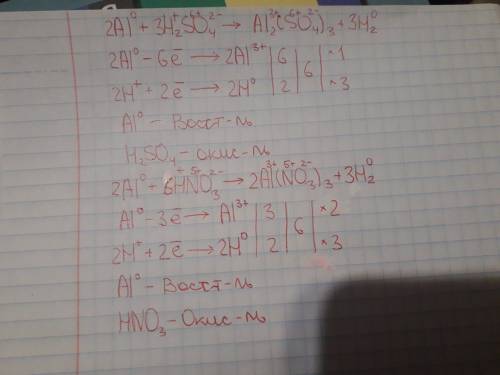 2Al⁰ + 3H₂⁺S⁶⁺O₄²⁻ → Al₂³⁺(S⁶⁺O₄²⁻)₃ + 3H₂⁰
2Al⁰ - 6ē → 2Al³⁺ | 6 | 6 | ×1
2H⁺ + 2ē → 2H⁰ | 2 | | ×3
Al⁰ - Восст-ль
H₂SO₄ - окис-ль
2Al⁰ + 6H⁺N⁵⁺O₃²⁻ → 2Al³⁺(N⁵⁺O₃²⁻)₃ + 3H₂⁰
Al⁰ - 3ē → Al³⁺ | 3 | 6 | ×2
2H⁺ + 2ē → 2H⁰ | 2 | | ×3
Al⁰ - Восст-ль
HNO₃ - Окис-ль